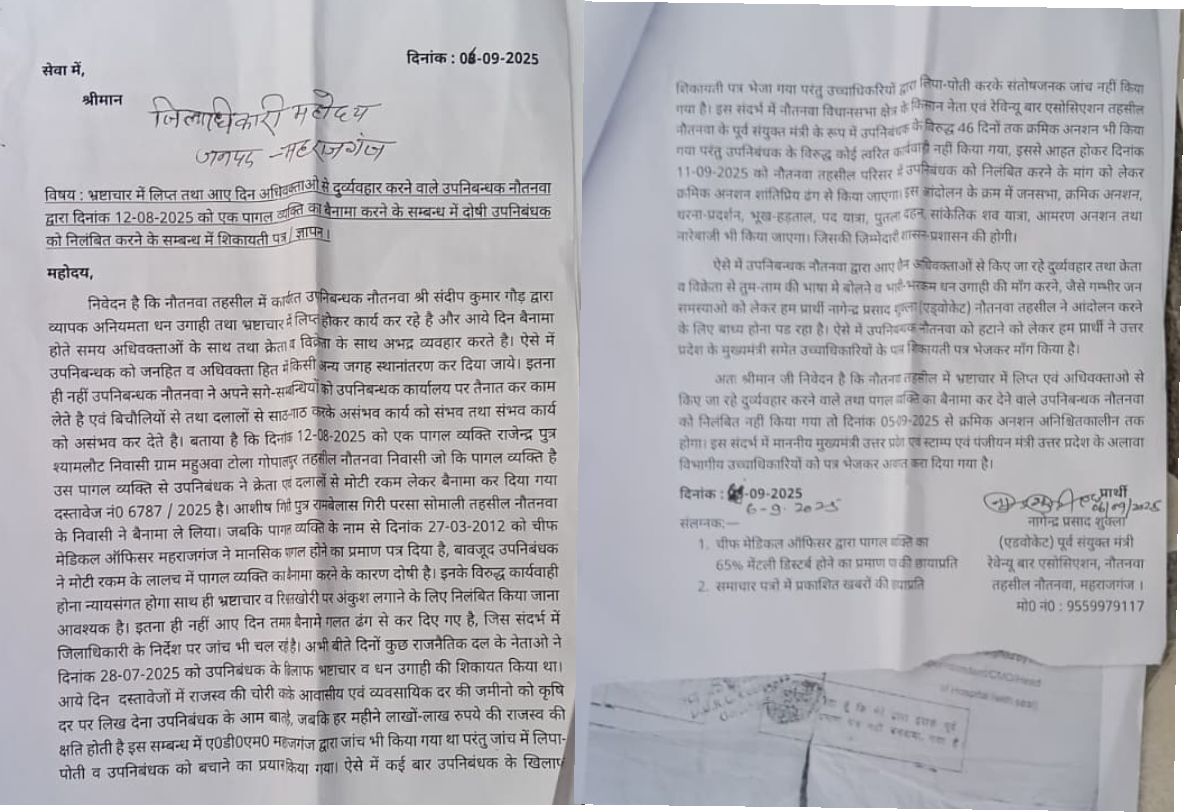 दिनांक : 06-09-2025
सेवा में,
श्रीमान
जिलाधिकारी महोदय
जनपद - महराजगंज
विषय : भ्रष्टाचार में लिप्त तथा आए दिन अधिवक्ताओ से दुर्व्यवहार करने वाले उपनिबन्धक नौतनवा
द्वारा दिनांक 12-08-2025 को एक पागल व्यक्ति का बैनामा करने के सम्बन्ध में दोषी उपनिबंधक
को निलंबित करने के सम्बन्ध में शिकायती पत्र/ज्ञापन।
महोदय,
निवेदन है कि नौतनवा तहसील में कार्यरत उपनिबन्धक नौतनवा श्री संदीप कुमार गौड़ द्वारा
व्यापक अनियमता धन उगाही तथा भ्रष्टाचार में लिप्त होकर कार्य कर रहे है और आये दिन बैनामा
होते समय अधिवक्ताओं के साथ तथा क्रेता व विक्रेता के साथ अभद्र व्यवहार करते है। ऐसे में
उपनिबन्धक को जनहित व अधिवक्ता हित में किसी अन्य जगह स्थानांतरण कर दिया जाये। इतना
ही नहीं उपनिबन्धक नौतनवा ने अपने सगे-सम्बन्धियों को उपनिबन्धक कार्यालय पर तैनात कर काम
लेते है एवं बिचौलियों से तथा दलालों से साठ-गाठ करके असंभव कार्य को संभव तथा संभव कार्य
को असंभव कर देते है। बताया है कि दिनांक 12-08-2025 को एक पागल व्यक्ति राजेन्द्र पुत्र
श्यामलौट निवासी ग्राम महुअवा टोला गोपालपुर तहसील नौतनवा निवासी जो कि पागल व्यक्ति है
उस पागल व्यक्ति से उपनिबंधक ने क्रेता एवं दलालों से मोटी रकम लेकर बैनामा कर दिया गया
दस्तावेज नं0 6787 / 2025 है। आशीष गिरी पुत्र रामबेलास गिरी परसा सोमाली तहसील नौतनवा
के निवासी ने बैनामा ले लिया। जबकि पागल व्यक्ति के नाम से दिनांक 27-03-2012 को चीफ
मेडिकल ऑफिसर महराजगंज ने मानसिक पागल होने का प्रमाण पत्र दिया है, बावजूद उपनिबंधक
ने मोटी रकम के लालच में पागल व्यक्ति का बैनामा करने के कारण दोषी है। इनके विरुद्ध कार्यवाही
होना न्यायसंगत होगा साथ ही भ्रष्टाचार व रिश्वतखोरी पर अंकुश लगाने के लिए निलंबित किया जाना
आवश्यक है। इतना ही नहीं आए दिन तमाम बैनामे गलत ढंग से कर दिए गए है, जिस संदर्भ में
जिलाधिकारी के निर्देश पर जांच भी चल रही है। अभी बीते दिनों कुछ राजनैतिक दल के नेताओ ने
दिनांक 28-07-2025 को उपनिबंधक के खिलाफ भ्रष्टाचार व धन उगाही की शिकायत किया था।
आये दिन दस्तावेजों में राजस्व की चोरी करके आवासीय एवं व्यवसायिक दर की जमीनो को कृषि
दर पर लिख देना उपनिबंधक के आम बात है, जबकि हर महीने लाखों-लाख रुपये की राजस्व की
क्षति होती है इस सम्बन्ध में ए0डी0एम0 महराजगंज द्वारा जांच भी किया गया था परंतु जांच में लिपा-
पोती व उपनिबंधक को बचाने का प्रयास किया गया। ऐसे में कई बार उपनिबंधक के खिलाफ
शिकायती पत्र भेजा गया परंतु उच्चाधिकरियों द्वारा लिपा-पोती करके संतोषजनक जांच नहीं किया
गया है। इस संदर्भ में नौतनवा विधानसभा क्षेत्र के किसान नेता एवं रेविन्यू बार एसोसिएशन तहसील
नौतनवा के पूर्व संयुक्त मंत्री के रूप में उपनिबंधक के विरुद्ध 46 दिनों तक क्रमिक अनशन भी किया
गया परंतु उपनिबंधक के विरुद्ध कोई त्वरित कार्यवाही नहीं किया गया, इससे आहत होकर दिनांक
11-09-2025 को नौतनवा तहसील परिसर में उपनिबंधक को निलंबित करने के मांग को लेकर
क्रमिक अनशन शांतिप्रिय ढंग से किया जाएगा। इस आंदोलन के क्रम में जनसभा, क्रमिक अनशन,
धरना-प्रदर्शन, भूख-हड़ताल, पद यात्रा, पुतला दहन, सांकेतिक शव यात्रा, आमरण अनशन तथा
नारेबाजी भी किया जाएगा। जिसकी जिम्मेदारी शासन-प्रशासन की होगी।
ऐसे में उपनिबन्धक नौतनवा द्वारा आए दिन अधिवक्ताओं से किए जा रहे दुर्व्यवहार तथा क्रेता
व विक्रेता से तुम-ताम की भाषा मे बोलने व भारी-भरकम धन उगाही की माँग करने, जैसे गम्भीर जन
समस्याओ को लेकर हम प्रार्थी नागेन्द्र प्रसाद शुक्ल (एडवोकेट) नौतनवा तहसील ने आंदोलन करने
के लिए बाध्य होना पड रहा है। ऐसे में उपनिबन्धक नौतनवा को हटाने को लेकर हम प्रार्थी ने उत्तर
प्रदेश के मुख्यमंत्री समेत उच्चाधिकारियों के पास शिकायती पत्र भेजकर माँग किया है।
अतः श्रीमान जी निवेदन है कि नौतनवा तहसील में भ्रष्टाचार में लिप्त एवं अधिवक्ताओ से
किए जा रहे दुर्व्यवहार करने वाले तथा पगल व्यक्ति का बैनामा कर देने वाले उपनिबन्धक नौतनवा
को निलंबित नहीं किया गया तो दिनांक 05-09-2025 से क्रमिक अनशन अनिश्चितकालीन तक
होगा। इस संदर्भ में माननीय मुख्यमंत्री उत्तर प्रदेश एवं स्टाम्प एवं पंजीयन मंत्री उत्तर प्रदेश के अलावा
विभागीय उच्चाधिकारियों को पत्र भेजकर अवगत करा दिया गया है।
दिनांक : -09-2025
6-9-2025
प्रार्थी
06/09/2025
संलग्नक:—
नागेन्द्र प्रसाद शुक्ला
1. चीफ मेडिकल ऑफिसर द्वारा पागल व्यक्ति का
(एडवोकेट) पूर्व संयुक्त मंत्री
65% मेंटली डिस्टर्ब होने का प्रमाण पत्र की छायाप्रति
रेवेन्यू बार एसोसिएशन, नौतनवा
2. समाचार पत्रों में प्रकाशित खबरों की छायाप्रति
तहसील नौतनवा, महराजगंज।
मो0 नं0 : 9559979117
of Hospital (with seal)